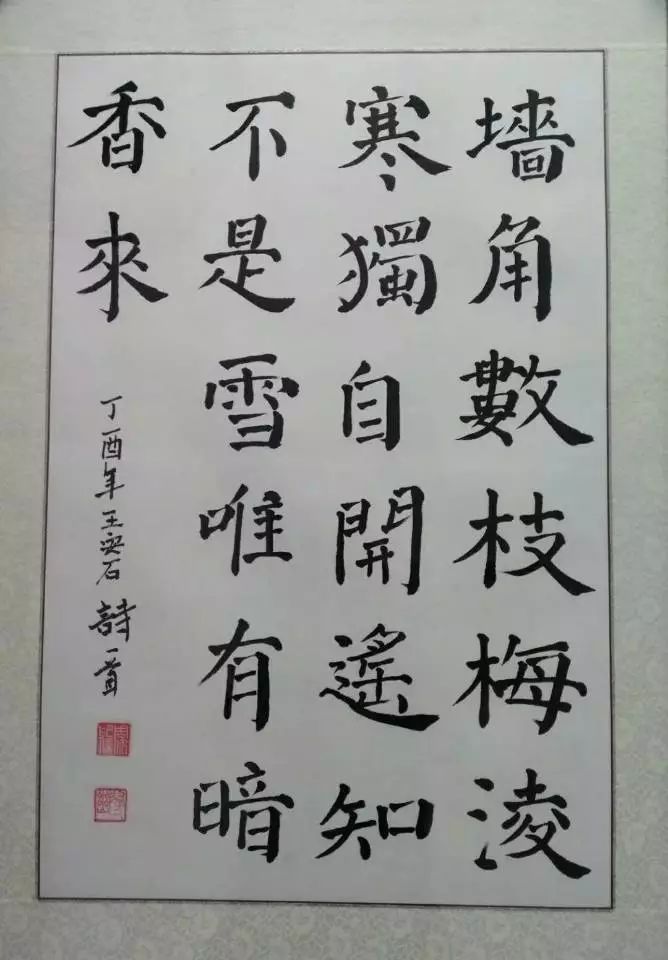 墻角數枝梅淩
寒獨自開遙知
不是雪唯有暗
香來
丁酉年王安石詩一首